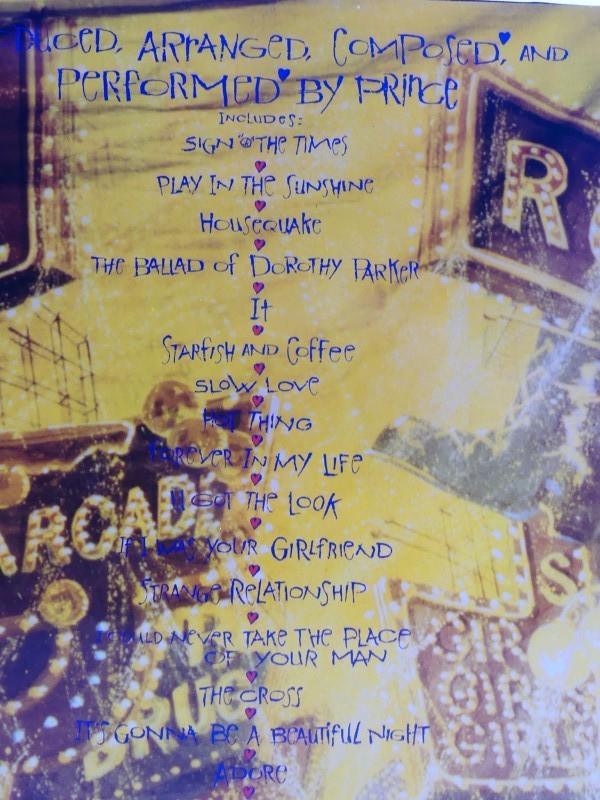 DUCED, ARRANGED, COMPOSED, AND
PERFORMED BY PRINCE
INCLUDES:
SIGN "☮" THE TIMES
PLAY IN THE SUNSHINE
HOUSEQUAKE
THE BALLAD of DOROTHY PARKER
It
STARFISH AND COFFEE
SLOW LOVE
HOT THING
FOREVER IN MY LIFE
U GOT THE LOOK
IF I WAS YOUR GIRLFRIEND
STRANGE RELATIONSHIP
I COULD NEVER TAKE THE PLACE
OF YOUR MAN
THE CROSS
IT'S GONNA BE A BEAUTIFUL NIGHT
ADORE
R
ARCADE
S
DRUGS
GIRLS
GIRLS
GIRLS